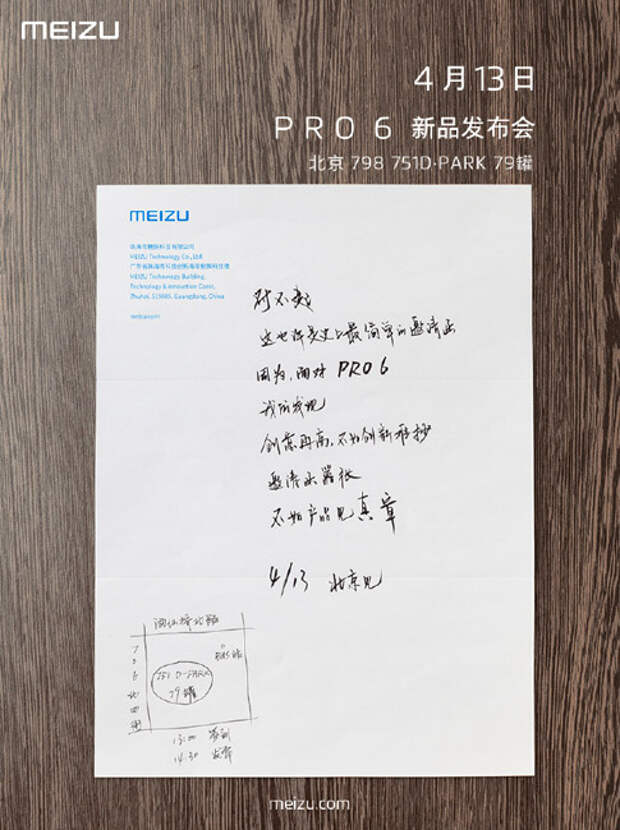 MEIZU
4月13日
PRO 6 新品发布会
北京 798 751D·PARK 79罐
MEIZU
珠海市魅族科技有限公司
MEIZU Technology Co., Ltd.
广东省珠海市科技创新海岸魅族科技楼
MEIZU Technology Building,
Technology & Innovation Coast,
Zhuhai, 519085, Guangdong, China
meizu.com
对不起
这也许是史上最简单的邀请函
因为,面对 PRO 6
我们发现
创意再高,不如创新看招
邀请函嚣张
不如产品见真章
4/13 北京见
酒仙桥北路
751 D-PARK
79罐
13:00 签到
14:30 发布
meizu.com